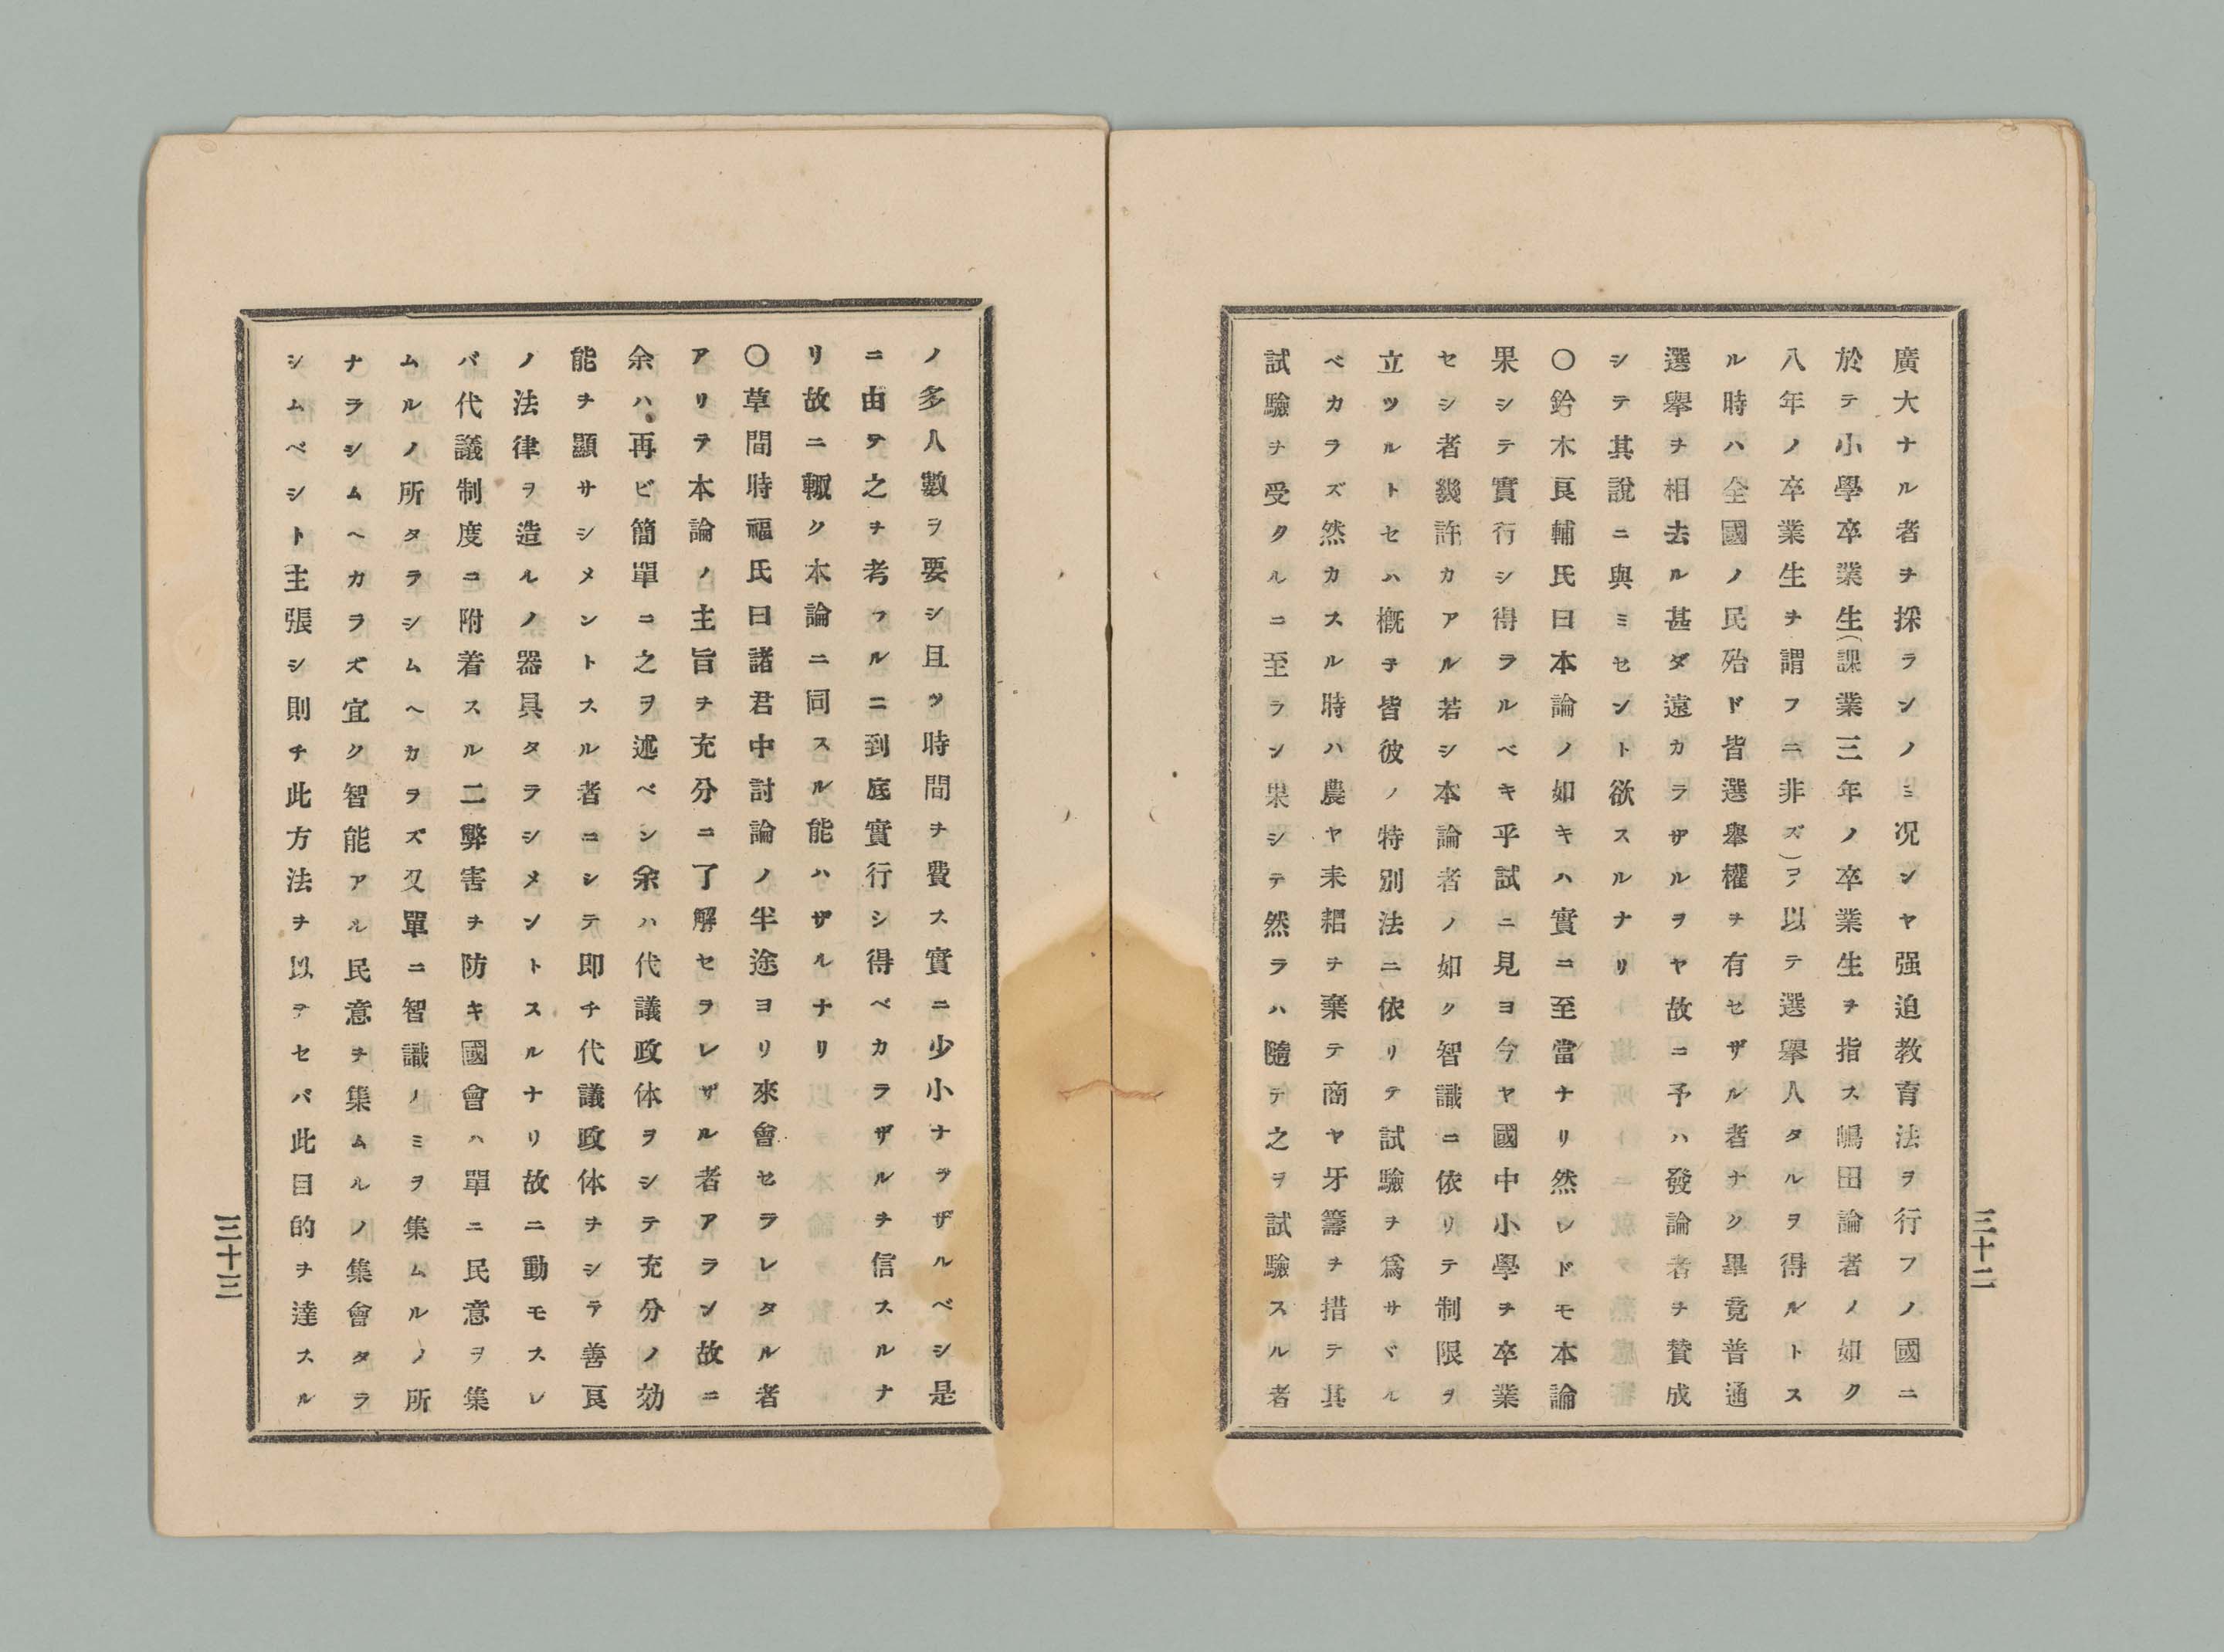 廣大ナル者ヲ採ランノミ况ンヤ强迫教育法ヲ行フノ國ニ
於テ小學卒業生(課業三年ノ卒業生ヲ指ス嶋田論者ノ如ク
八年ノ卒業生ヲ謂フニ非ズ)ヲ以テ選擧人タルヲ得ルトス
ル時ハ全國ノ民殆ド皆選擧權ヲ有セザル者ナク畢竟普通
選擧ヲ相去ル甚ダ遠カラザルヲヤ故ニ予ハ發論者ヲ賛成
シテ其說ニ與ミセント欲スルナリ
〇鈴木良輔氏曰本論ノ如キハ實ニ至當ナリ然レドモ本論
果シテ實行シ得ラルベキ乎試ニ見ヨ今ヤ國中小學ヲ卒業
セシ者幾許カアル若シ本論者ノ如ク智識ニ依リテ制限ヲ
立ツルトセハ槪子皆彼ノ特別法ニ依リテ試驗ヲ爲サヾル
ベカラズ然カスル時ハ農ヤ耒耜ヲ棄テ商ヤ牙籌ヲ措テ其
試驗ヲ受クルニ至ラン果シテ然ラハ隨テ之ヲ試驗スル者
三十二
ノ多人數ヲ要シ且ツ時間ヲ費ス實ニ少小ナラザルベシ是
ニ由テ之ヲ考フルニ到底實行シ得ベカラザルヲ信スルナ
リ故ニ輙ク本論ニ同スル能ハザルナリ
〇草間時福氏曰諸君中討論ノ半途ヨリ來會セラレタル者
アリテ本論ノ主旨ヲ充分ニ了解セラレザル者アラン故ニ
余ハ再ビ簡單ニ之ヲ述ベン余ハ代議政体ヲシテ充分ノ効
能ヲ顯サシメントスル者ニシテ即チ代議政体ヲシテ善良
ノ法律ヲ造ルノ器具タラシメントスルナリ故ニ動モスレ
バ代議制度ニ附着スル二弊害ヲ防キ國會ハ單ニ民意ヲ集
ムルノ所タラシムヘカラズ又單ニ智識ノミヲ集ムルノ所
ナラシムヘカラズ宜ク智能アル民意ヲ集ムルノ集會タラ
シムベシト主張シ則チ此方法ヲ以テセバ此目的ヲ達スル
三十三